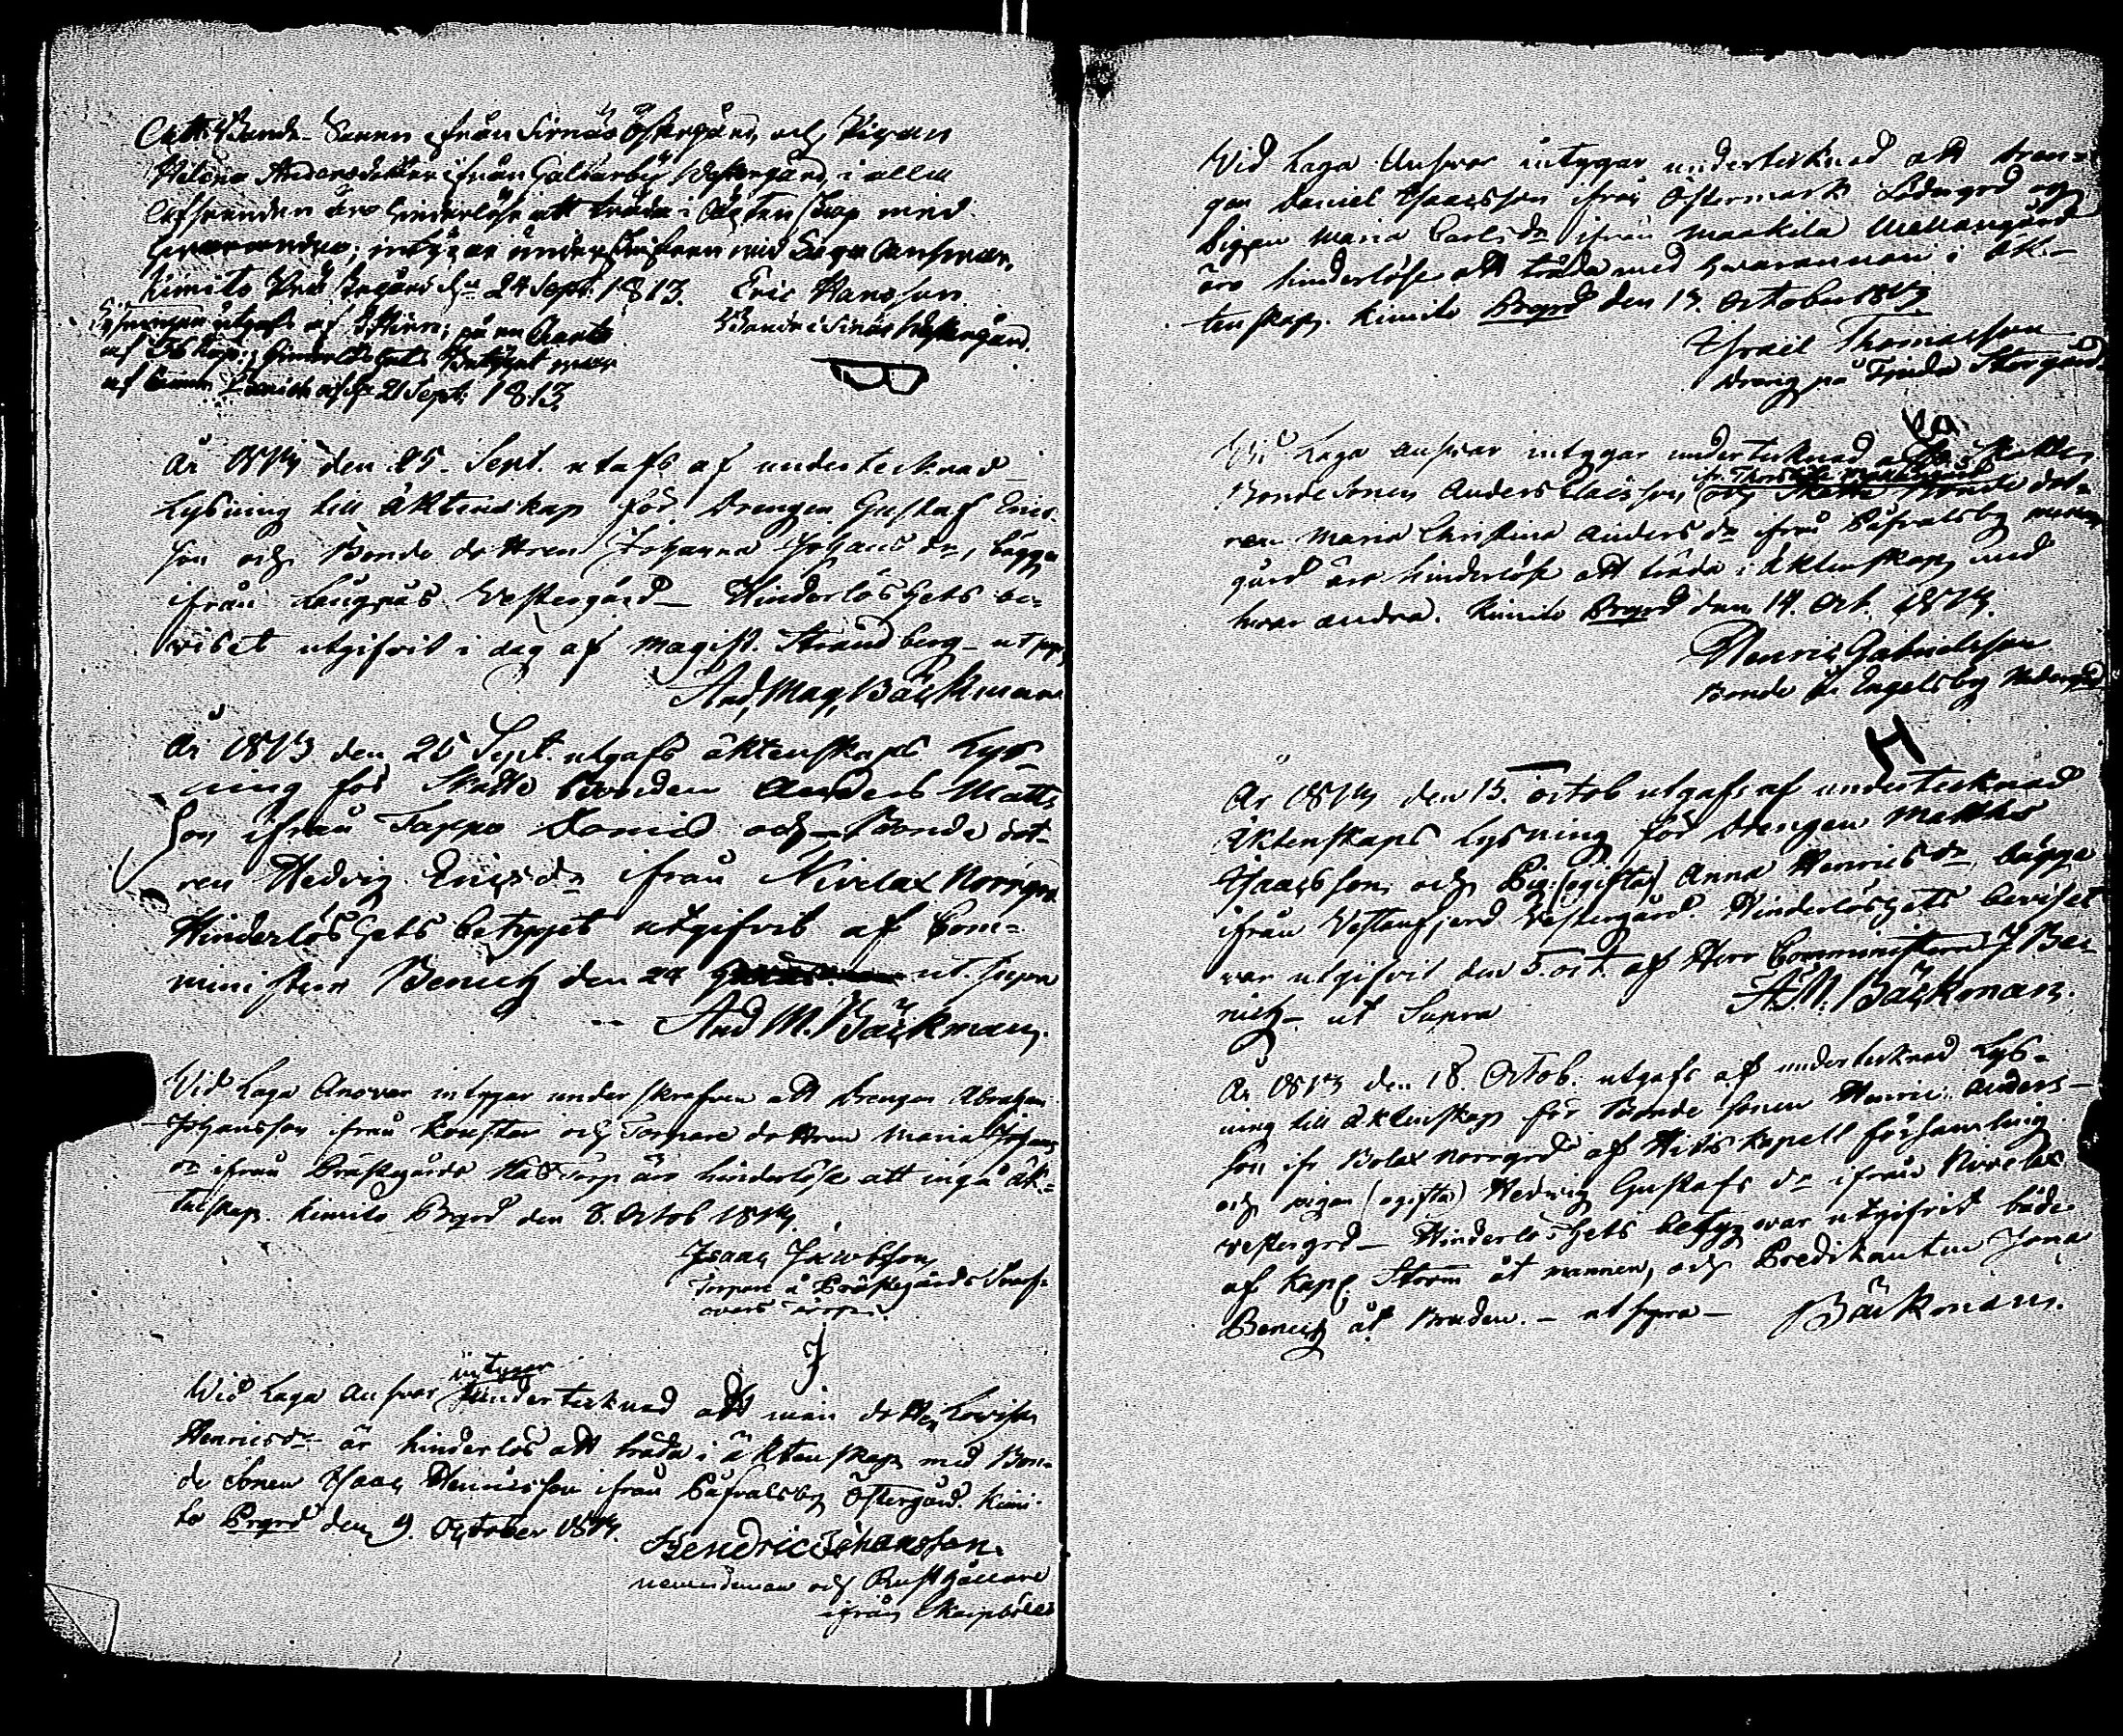 Att Bonde Sonen ifrån Sirnäs Östergård, och Pigan
Helena Andersdotter ifrån Galtarby Westergård, i alla
afseenden äro hinderlöse att träda i Äktenskap med
hvarandra; intygar underskrifven vid Laga Answar.
Kimito Prästegård d. 24 Sept. 1813. Eric Hansson
Bonde i Sirnäs Westergård.
Lysningen utgafs af
af hinderlöshets Betyget
af Comm. Benich d. 21 Sept. 1813.
År 1813 den 25. Sept. utafs af undertecknad
Lysning till äktenskap för Drengen Gustaf Erics-
son och Bonde dottren Johanna Johansdr, bägge
ifrån Långnäs Vestergård – Hinderlöshets be-
viset utgifvit i dag af Magist. Strandberg – ut supr.
And. Mag. Bäckman
År 1813 den 25 Sept. utgafs äktenskaps Lys-
ning för Skatte bonden Anders Matts
son ifrån Tappo och Bonde dot-
ren Hedvig Ericsdr ifrån Nivelax Norrgrd
Hinderlöshets betyget utgifvit af Com-
ministern Benich den 24 ut supra
And M. Bäckman.
Vid Laga Ansvar intygar under skrefven att Drengen Abraham
Johansson ifrån Konstar och Torpare dottren Maria Johans
dr ifrån Prästegårds torp äro hinderlöse att ingå äk-
tenskap. Kimito Prgrd den 8. Octob 1813.
Isaac Jacobsson
Torpare å Prästegårds
J
intygar
Wid Laga Ansvar undertecknad att min dotter Lovisa
Henricsdr är hinderlös att träda i äktenskap med Bon-
de sonen Isaac Henricsson ifrån Påfvalsby Östergård. Kimi-
to Prgrd den 9. October 1813.
Hendric Johansson.
nemndeman och Rusthållare
ifrån Skinnböle
Vid Laga Ansvar intygar undertecknad att dren-
gen Daniel Isaacsson ifrån Östermark Södergrd och
Pigan Maria Carlsdr ifrån Maakila Mellangård
äro hinderlöse att träda med hvarannan i äk-
tenskap. Kimito Prgrd den 13. October 1813
Israil Thomasson
Dreng på Tjuda Storgård
Vid Laga Ansvar intygar undertecknad att Skatte
Bonde sonen Anders Claësson och Skatte Bonde dot-
ren Maria Christina Andersdr ifrån Påfvalsby mellan
gård äro hinderlöse att träda i äktenskap med
hvar andra. Kimito Prgrd den 14. Oct. 1813.
Henric Gabrielsson
Bonde fr. Engelsby Nedergård
H
År 1813 den 15. Octob utgafs af undertecknad
Äktenskaps Lysning för Drengen Matths
Isaacsson och Pig. (ogifta) Anna Henricsdr, bägge
ifrån Vestanfjerd Vestergård. Hinderlöshets beviset
var utgifvit den 5. oct. af Herr Comministern J Be-
nich – ut Supra A.M. Bäckman.
År 1813 den 18. Octob. utgafs af undertecknad Lys-
ning till äktenskap för Bonde sonen Henric Anders-
son ifr Bolax norrgrd af Hitis Kapell församling
och pigan (ogifta) Hedvig Gustafsdr ifrån Nivelax
vestergrd – Hinderlöshets betyg var utgifvit både
af Kapl. Storm åt mannen, och Predikanten Jona
Benich åt Bruden. – ut supra – Bäckman.